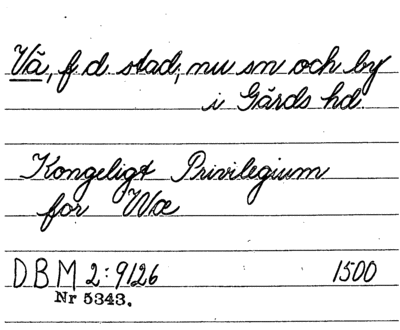 Vä, f. d. stad; nu sn och by
i Gärds hd.
Kongeligt Privilegium
for Wæ
DBM 2:9126 1500
Nr 5343.